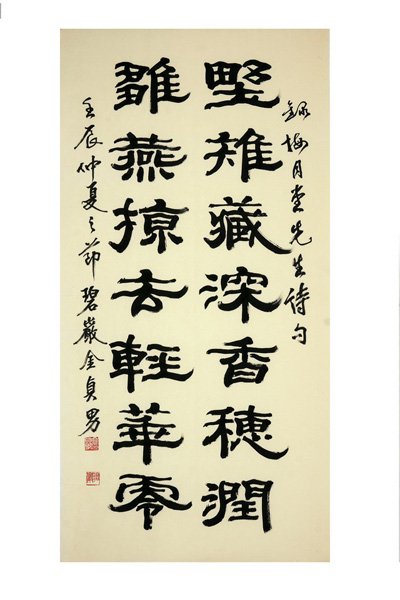 錄梅月堂先生詩句
野雉藏深香穗潤
雛燕掠去輕華零
壬辰仲夏之節碧巖金貞男